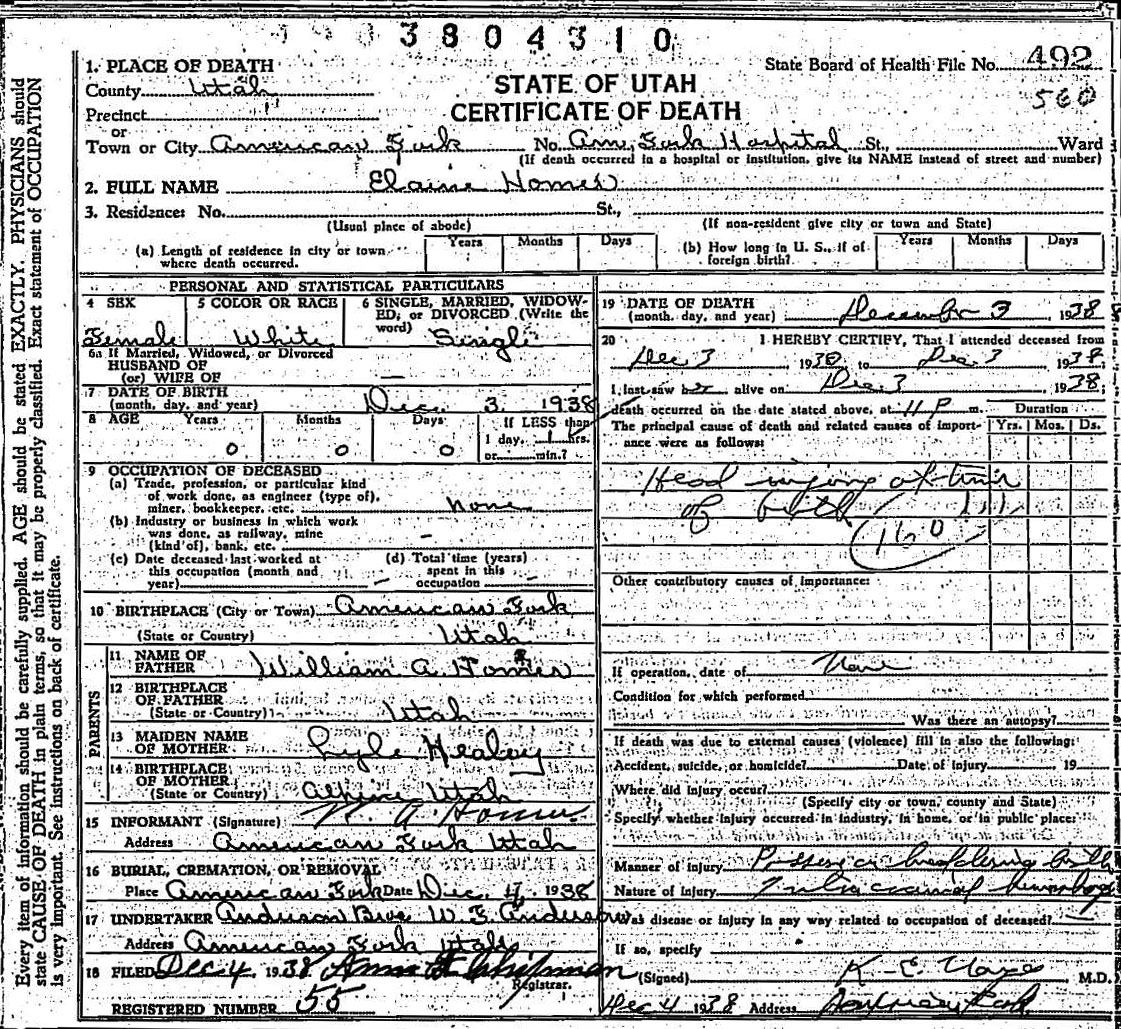 1903804310
State Board of Health File No. 492
560
STATE OF UTAH
CERTIFICATE OF DEATH
1. PLACE OF DEATH
County Utah
Precinct "
or
Town or City American Fork No. Am. Fork Hospital St., Ward
(If death occurred in a hospital or institution, give its NAME instead of street and number)
2. FULL NAME Elaine Homer
3. Residence: No. St.,
(Usual place of abode) (If non-resident give city or town and State)
(a) Length of residence in city or town where death occurred. Years Months Days
(b) How long in U. S., if of foreign birth? Years Months Days
PERSONAL AND STATISTICAL PARTICULARS
4 SEX Female
5 COLOR OR RACE White
6 SINGLE, MARRIED, WIDOWED, or DIVORCED (Write the word) Single
6a If Married, Widowed, or Divorced
HUSBAND OF
(or) WIFE OF —
7 DATE OF BIRTH
(month, day, and year) Dec. 3. 1938
8 AGE Years 0 Months 0 Days 0
If LESS than 1 day, 1 hrs. or min.?
9 OCCUPATION OF DECEASED
(a) Trade, profession, or particular kind
of work done, as engineer (type of),
miner, bookkeeper, etc. none
(b) Industry or business in which work
was done, as railway, mine
(kind of), bank, etc. —
(c) Date deceased last worked at
this occupation (month and
year) —
(d) Total time (years)
spent in this
occupation —
10 BIRTHPLACE (City or Town) American Fork
(State or Country) Utah
PARENTS
11 NAME OF
FATHER William A. Homer
12 BIRTHPLACE
OF FATHER
(State or Country) Utah
13 MAIDEN NAME
OF MOTHER Lyle Healey
14 BIRTHPLACE
OF MOTHER
(State or Country) Alpine Utah
15 INFORMANT (Signature) W. A. Homer
Address American Fork Utah
16 BURIAL, CREMATION, OR REMOVAL
Place American Fork Date Dec. 4, 1938
17 UNDERTAKER Anderson Bros. W. E. Anderson
Address American Fork Utah
18 FILED Dec 4, 1938 Chipman
Registrar.
REGISTERED NUMBER 55
19 DATE OF DEATH
(month, day, and year) December 3 1938
20 I HEREBY CERTIFY, That I attended deceased from
Dec 3 1938 to Dec. 3 1938.
I last saw her alive on Dec 3, 1938.
death occurred on the date stated above, at 11 P m.
Duration
Yrs. Mos. Ds.
The principal cause of death and related causes of importance were as follows:
Head injury at time
of birth
160
Other contributory causes of importance:
If operation, date of None
Condition for which performed
Was there an autopsy?
If death was due to external causes (violence) fill in also the following:
Accident, suicide, or homicide? Date of injury 19
Where did injury occur?
(Specify city or town, county and State)
Specify whether injury occurred in industry, in home, or in public place:
Manner of injury birth
Nature of injury Intracranial hemorrhage
Was disease or injury in any way related to occupation of deceased? —
If so, specify
(Signed) K. E. M.D.
Dec 4 1938 Address
Every item of information should be carefully supplied. AGE should be stated EXACTLY. PHYSICIANS should
state CAUSE OF DEATH in plain terms, so that it may be properly classified. Exact statement of OCCUPATION
is very important. See instructions on back of certificate.